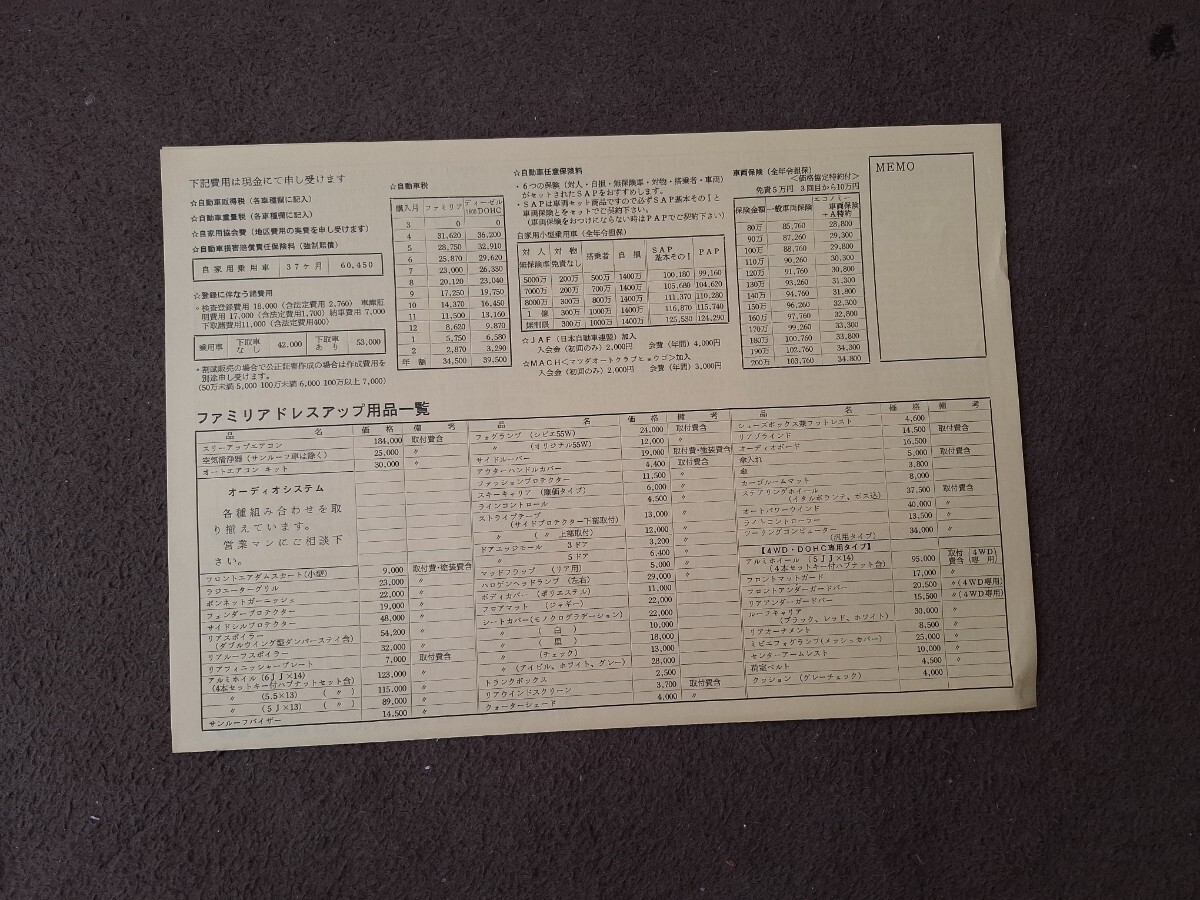 下記費用は現金にて申し受けます
☆自動車取得税（各車種欄に記入）
☆自動車重量税（各車種欄に記入）
☆自家用協会費（地区費用の実費を申し受けます）
☆自動車損害賠償責任保険料（強制賠償）
自家用乗用車 37ヶ月 60,450
☆登録に伴なう諸費用
・検査登録費用 18,000（含法定費用 2,760） 車庫証
明費用 17,000（含法定費用1,700）納車費用 7,000
下取諸費用11,000（含法定費用400）
乗用車 下取車なし 42,000 下取車あり 53,000
・割賦販売の場合で公正証書作成の場合は作成費用を
別途申し受けます。
（50万未満 5,000 100万未満 6,000 100万以上 7,000）
☆自動車税
購入月 ファミリア ディーゼル 1600DOHC
3 0 0
4 31,620 36,200
5 28,750 32,910
6 25,870 29,620
7 23,000 26,330
8 20,120 23,040
9 17,250 19,750
10 14,370 16,450
11 11,500 13,160
12 8,620 9,870
1 5,750 6,580
2 2,870 3,290
年額 34,500 39,500
☆自動車任意保険料
・6つの保険（対人・自損・無保険車・対物・搭乗者・車両）
がセットされたSAPをおすすめします。
・SAPは車両セット商品ですので必ずSAP基本そのIと
車両保険とをセットでご契約下さい。
（車両保険をおつけにならない時はPAPでご契約下さい）
自家用小型乗用車（全年令担保）
対人 対物 搭乗者 自損 SAP PAP
無保険車 免責なし 基本そのI
5000万 200万 500万 1400万 100,180 99,160
7000万 200万 700万 1400万 105,680 104,620
8000万 300万 800万 1400万 111,370 110,280
1億 300万 1000万 1400万 116,870 115,740
無制限 300万 1000万 1400万 125,530 124,290
☆JAF（日本自動車連盟）加入
入会金（初回のみ）2,000円 会費（年間）4,000円
☆MACH＜マツダオートクラブヒョウゴ＞加入
入会金（初回のみ）2,000円 会費（年間）3,000円
車両保険（全年令担保）
＜価格協定特約付＞
免責5万円 3回目から10万円
保険金額 一般車両保険 エコノミー車両保険+A特約
80万 85,760 28,800
90万 87,260 29,300
100万 88,760 29,800
110万 90,260 30,300
120万 91,760 30,800
130万 93,260 31,300
140万 94,760 31,800
150万 96,260 32,300
160万 97,760 32,800
170万 99,260 33,300
180万 100,760 33,800
190万 102,260 34,300
200万 103,760 34,800
MEMO
ファミリアドレスアップ用品一覧
品名 価格 備考
スリーアップエアコン 184,000 取付費含
空気清浄器（サンルーフ車は除く） 25,000 〃
オートエアコン キット 30,000 〃
オーディオシステム
各種組み合わせを取
り揃えています。
営業マンにご相談下
さい。
フロントエアダムスカート（小型） 9,000 取付費・塗装費含
ラジエーターグリル 23,000 〃
ボンネットガーニッシュ 22,000 〃
フェンダープロテクター 19,000 〃
サイドシルプロテクター 48,000 〃
リアスポイラー
（ダブルウイング型ダンパーステイ含） 54,200 〃
リアルーフスポイラー 32,000 〃
リアフィニッシャープレート 7,000 取付費含
アルミホイル（6JJ×14）
（4本セットキー付ハブナットセット含） 123,000 〃
〃 （5.5×13） （〃） 115,000 〃
〃 （5J×13） （〃） 89,000 〃
サンルーフバイザー 14,500 〃
品名 価格 備考
フォグランプ（シビエ55W） 24,000 取付費含
〃 （オリジナル55W） 12,000 〃
サイドルーバー 19,000 取付費・塗装費含
アウターハンドルカバー 4,400 取付費含
ファッションプロテクター 11,500 〃
スキーキャリア（廉価タイプ） 6,000 〃
ラインコントロール 4,500 〃
ストライプテープ
（サイドプロテクター下部取付） 13,000 〃
〃 （〃 上部取付） 12,000 〃
ドアエッジモール 3ドア 3,200 〃
〃 5ドア 6,400 〃
マッドフラップ （リア用） 5,000 〃
ハロゲンヘッドランプ（左右） 29,000 〃
ボディカバー （ポリエステル） 11,000
フロアマット （ジャギー） 22,000
シートカバー（モノクログラデーション） 22,000
〃 （白） 10,000
〃 （黒） 18,000
〃 （チェック） 13,000
〃 （アイビル、ホワイト、グレー） 28,000
トランクボックス 2,500
リアウインドスクリーン 3,700 取付費含
クォーターシェード 4,000 〃
品名 価格 備考
シューズボックス兼フットレスト 4,600
リアブラインド 14,500 取付費含
オーディオボード 16,500
傘入れ 5,000 取付費含
傘 3,800
カーゴルームマット 8,000
ステアリングホイール
（イタルボランテ、ボス込） 37,500 取付費含
オートパワーウインド 40,000 〃
ライトコントローラー 13,500 〃
ツーリングコンピューター
（汎用タイプ） 34,000 〃
【4WD・DOHC専用タイプ】
アルミホイール（5JJ×14）
（4本セットキー付ハブナット含） 95,000 取付費含（4WD専用）
フロントマットガード 17,000 〃
フロントアンダーガードバー 20,500 〃（4WD専用）
リアアンダーガードバー 15,500 〃（4WD専用）
ルーフキャリア
（ブラック、レッド、ホワイト） 30,000 〃
リアオーナメント 8,500 〃
ミビエフォグランプ（メッシュカバー） 25,000 〃
センターアームレスト 10,000 〃
荷定ベルト 4,500 〃
クッション（グレーチェック） 4,000